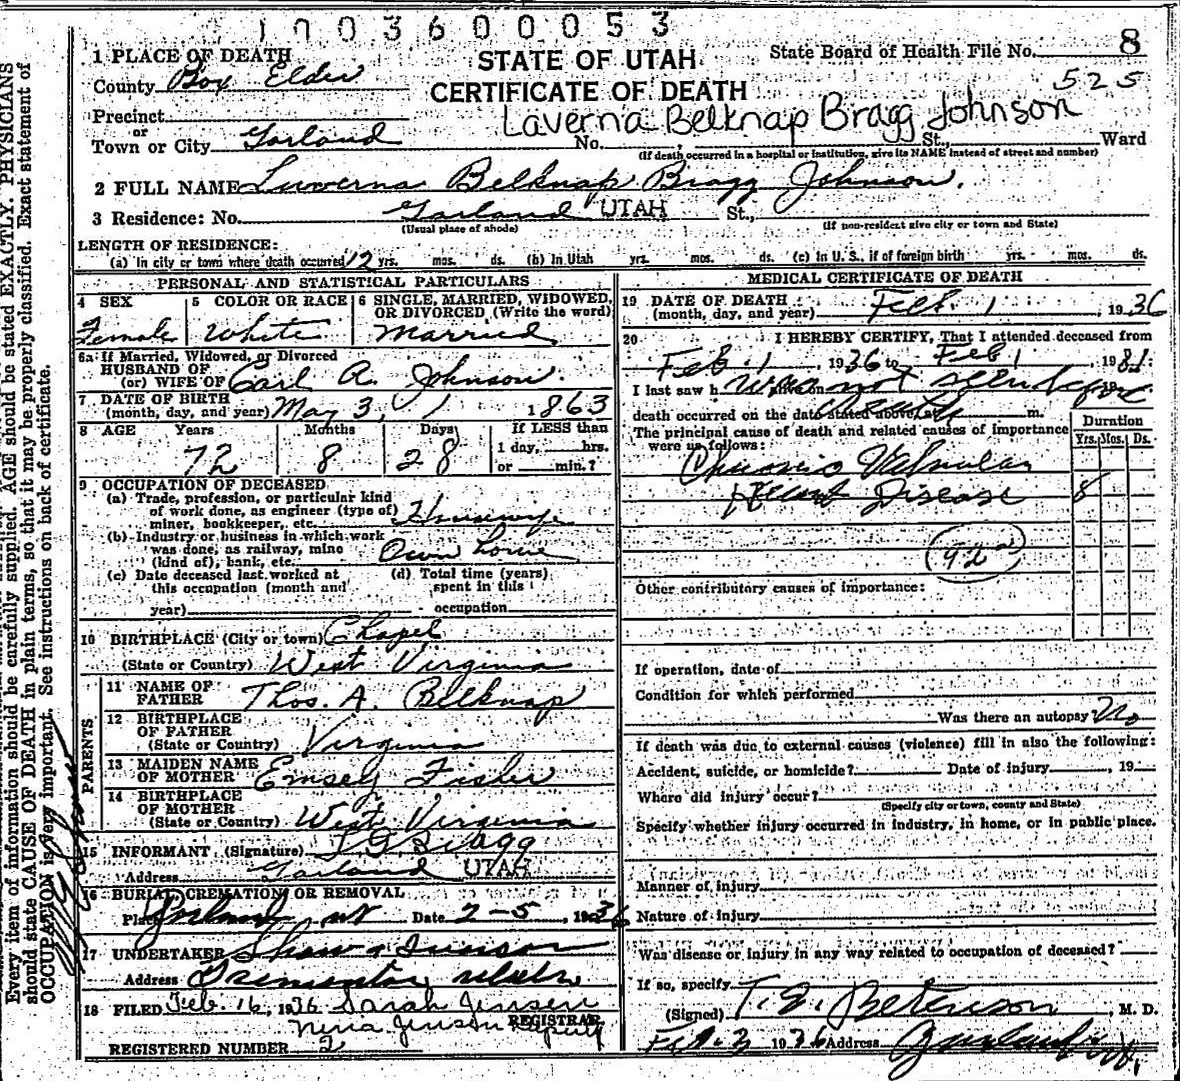 1 7 0 3 6 0 0 0 5 3
STATE OF UTAH
CERTIFICATE OF DEATH
State Board of Health File No. 8
525
Laverna Belknap Bragg Johnson
1 PLACE OF DEATH
County Box Elder
Precinct
or
Town or City Garland No. , St., Ward
(If death occurred in a hospital or institution, give its NAME instead of street and number)
2 FULL NAME Luverna Belknap Bragg Johnson.
3 Residence: No. Garland UTAH St.,
(Usual place of abode) (If non-resident give city or town and State)
LENGTH OF RESIDENCE:
(a) In city or town where death occurred 12 yrs. mos. ds. (b) In Utah yrs. mos. ds. (c) In U. S., if of foreign birth yrs. mos. ds.
PERSONAL AND STATISTICAL PARTICULARS
4 SEX Female
5 COLOR OR RACE White
6 SINGLE, MARRIED, WIDOWED, OR DIVORCED (Write the word) Married
6a If Married, Widowed, or Divorced
HUSBAND OF
(or) WIFE OF Carl A. Johnson.
7 DATE OF BIRTH
(month, day, and year) May 3, 1 1863
8 AGE Years Months Days If LESS than
1 day, hrs.
72 8 28 or min.?
9 OCCUPATION OF DECEASED
(a) Trade, profession, or particular kind
of work done, as engineer (type of)
miner, bookkeeper, etc. Housewife
(b) Industry or business in which work
was done, as railway, mine
(kind of), bank, etc. Own home
(c) Date deceased last worked at
this occupation (month and
year)
(d) Total time (years)
spent in this
occupation
10 BIRTHPLACE (City or town) Chapel
(State or Country) West Virginia
PARENTS
11 NAME OF
FATHER Thos. A. Belknap
12 BIRTHPLACE
OF FATHER
(State or Country) Virginia
13 MAIDEN NAME
OF MOTHER Emsey Fisher
14 BIRTHPLACE
OF MOTHER
(State or Country) West Virginia
15 INFORMANT (Signature) Bragg
Address Garland UTAH
16 BURIAL, CREMATION OR REMOVAL
Place Date 2-5, 1936
17 UNDERTAKER Shaw &
Address Tremonton
18 FILED Feb. 16, 1936 Sarah Jensen
REGISTRAR
Nina Jenson Deputy
REGISTERED NUMBER 2
MEDICAL CERTIFICATE OF DEATH
19 DATE OF DEATH
(month, day, and year) Feb. 1, 1936
20 I HEREBY CERTIFY, That I attended deceased from
Feb. 1, 1936 to Feb 1 1981:
I last saw h was not seen before
death
death occurred on the date stated above, at m.
The principal cause of death and related causes of importance
were as follows:
Duration
Yrs. Mos. Ds.
Chronic Valvular
Heart Disease 8
92
Other contributory causes of importance:
If operation, date of
Condition for which performed
Was there an autopsy? No
If death was due to external causes (violence) fill in also the following:
Accident, suicide, or homicide? Date of injury , 19
Where did injury occur?
(Specify city or town, county and State)
Specify whether injury occurred in industry, in home, or in public place.
Manner of injury
Nature of injury
Was disease or injury in any way related to occupation of deceased?
If so, specify
(Signed) Peterson, M. D.
Feb. 3 1936 Address Garland
Every item of information should be carefully supplied. AGE should be stated EXACTLY. PHYSICIANS
should state CAUSE OF DEATH in plain terms, so that it may be properly classified. Exact statement of
OCCUPATION is very important. See instructions on back of certificate.